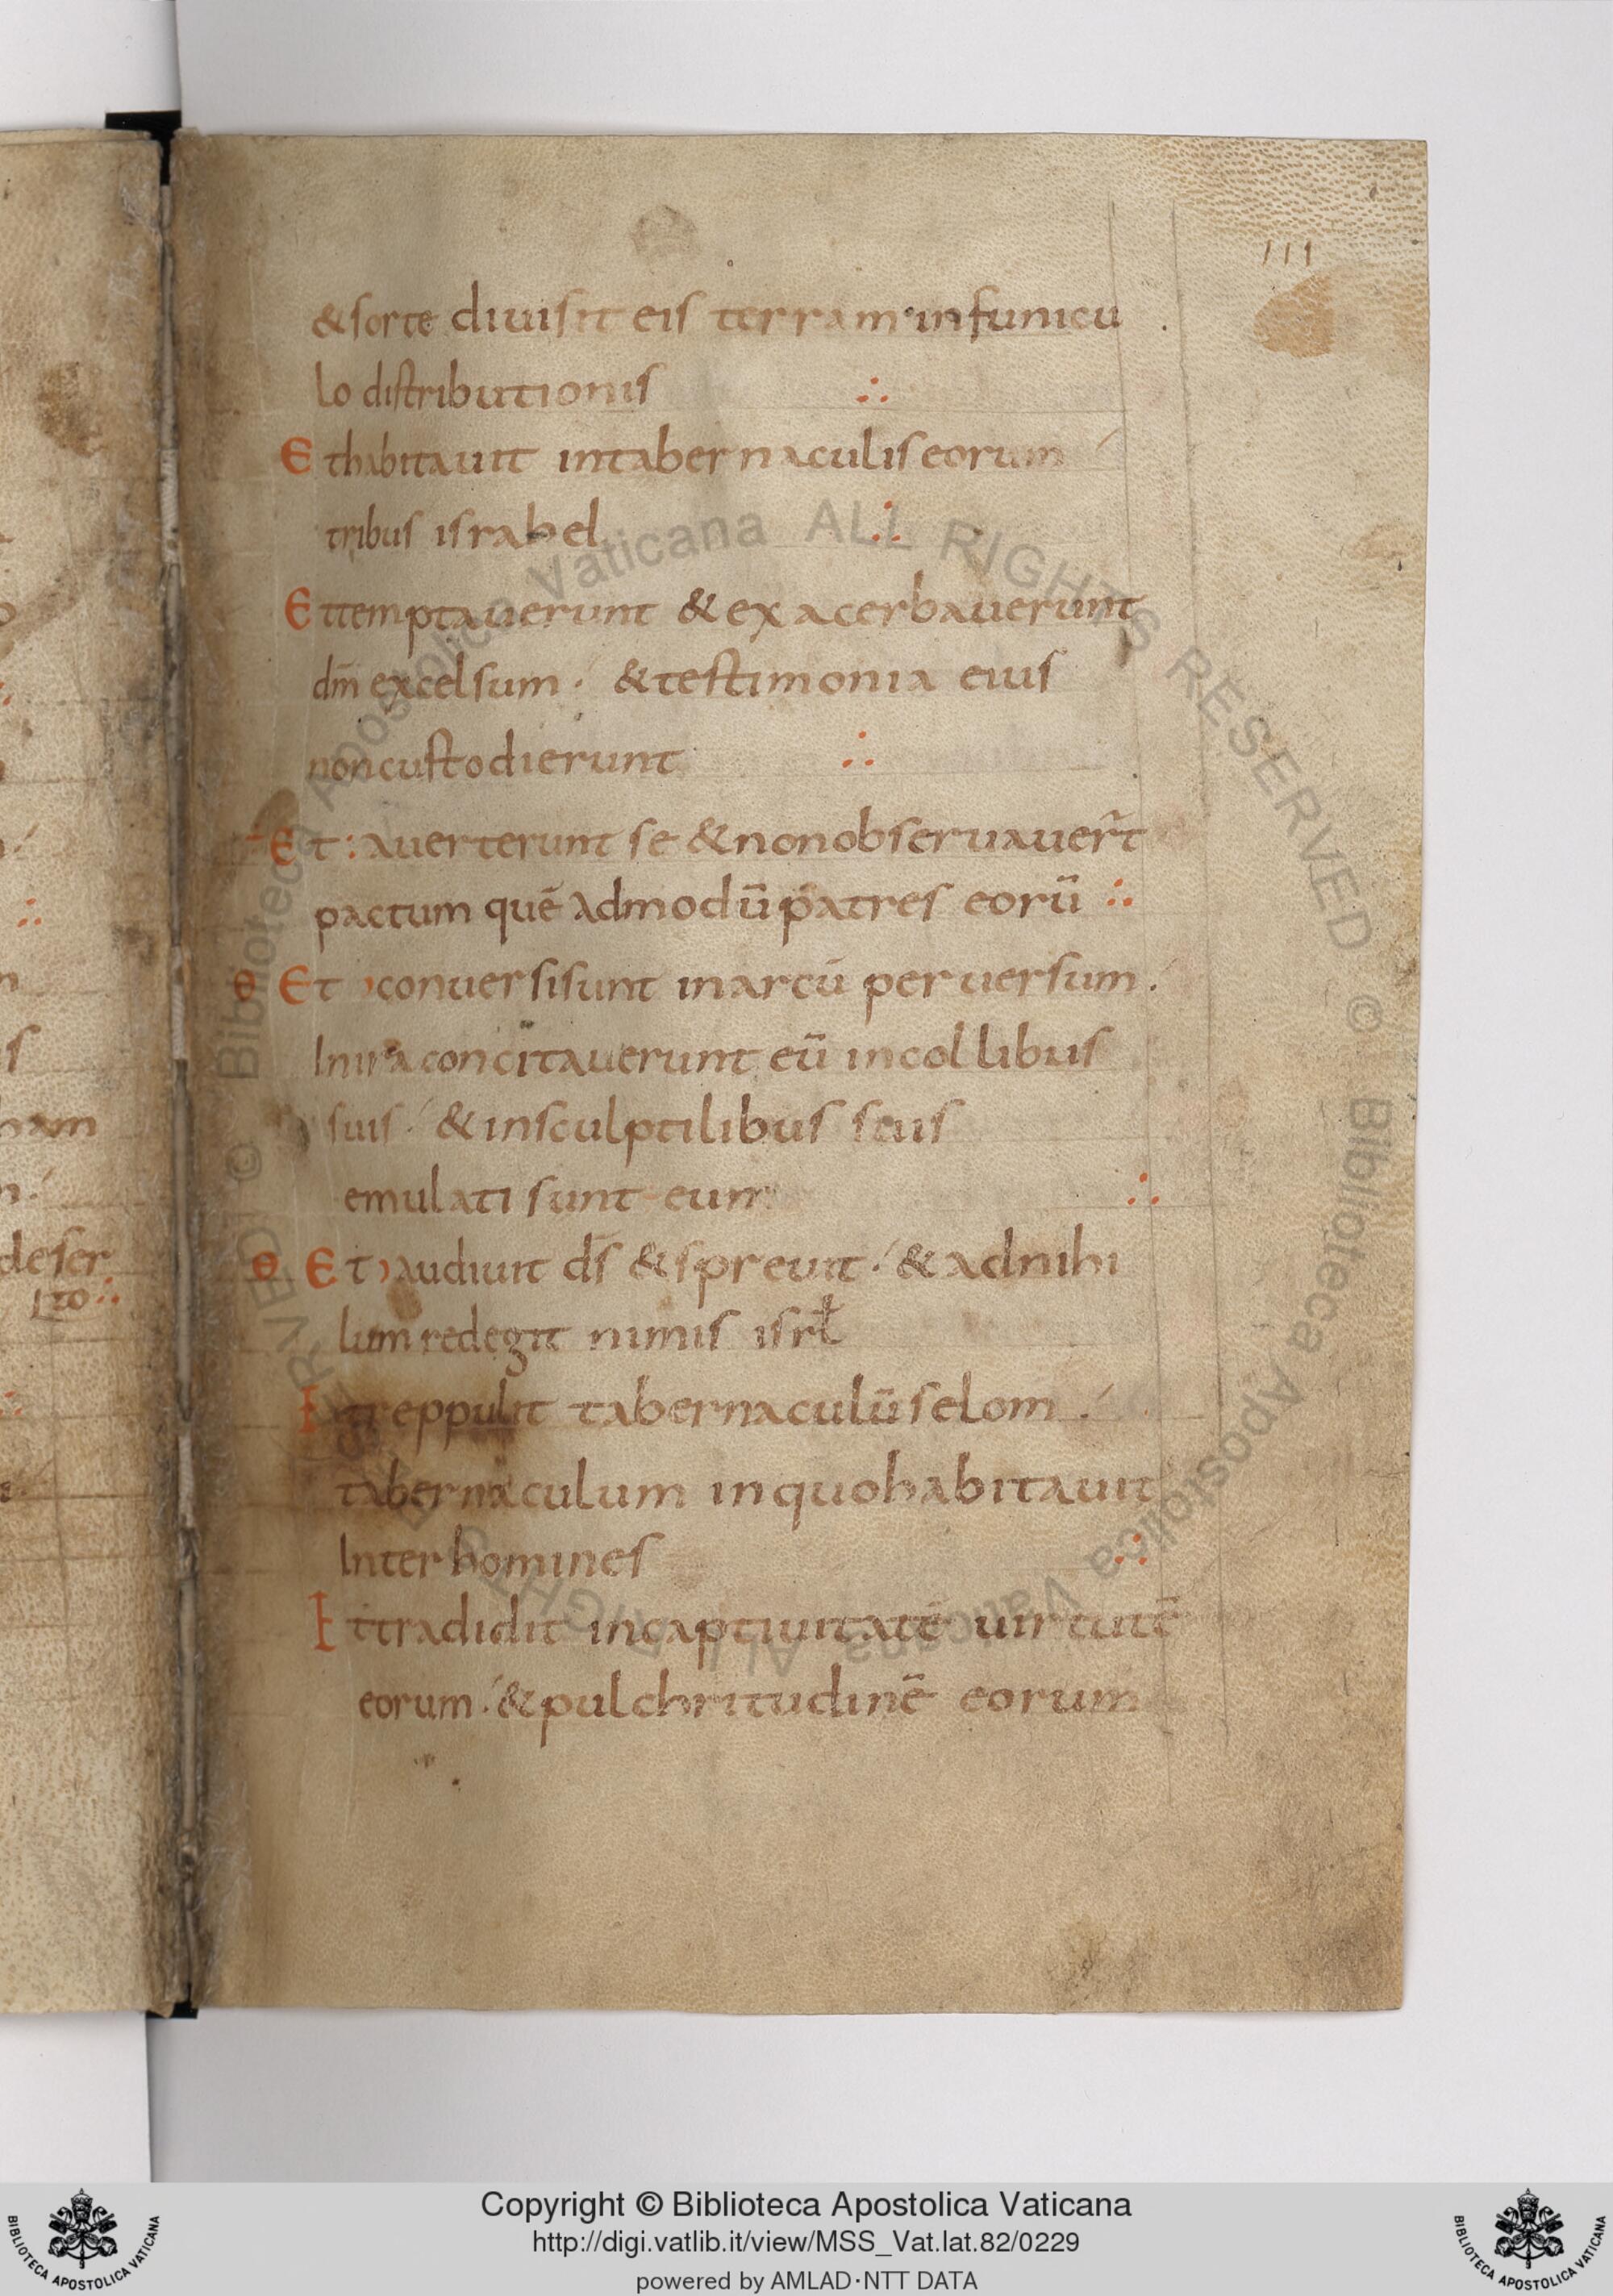 111
& sorte diuisit eis terram in funicu
lo distributionis ∴
Et habitauit in tabernaculis eorum
tribus israhel ∴
Et temptauerunt & exacerbauerunt
dm̄ excelsum · & testimonia eius
non custodierunt ∴
Et : auerterunt se & non obseruauer̄t
pactum quē admodū patres eorū ∴
θ Et conuersi sunt in arcū peruersum .
In ira concitauerunt eū in collibus
suis · & in sculptilibus seuis
emulati sunt eum ∴
θ Et audiuit ds̄ & spreuit · & adnihi
lum redegit nimis isrł
Et reppulit tabernaculū selom .
tabernaculum in quo habitauit
Inter homines ∴
Et tradidit in captiuitatē uirtutē
eorum · & pulchritudinē eorum
deser
to ∴
Copyright © Biblioteca Apostolica Vaticana
http://digi.vatlib.it/view/MSS_Vat.lat.82/0229
powered by AMLAD·NTT DATA
BIBLIOTECA APOSTOLICA VATICANA
BIBLIOTECA APOSTOLICA VATICANA